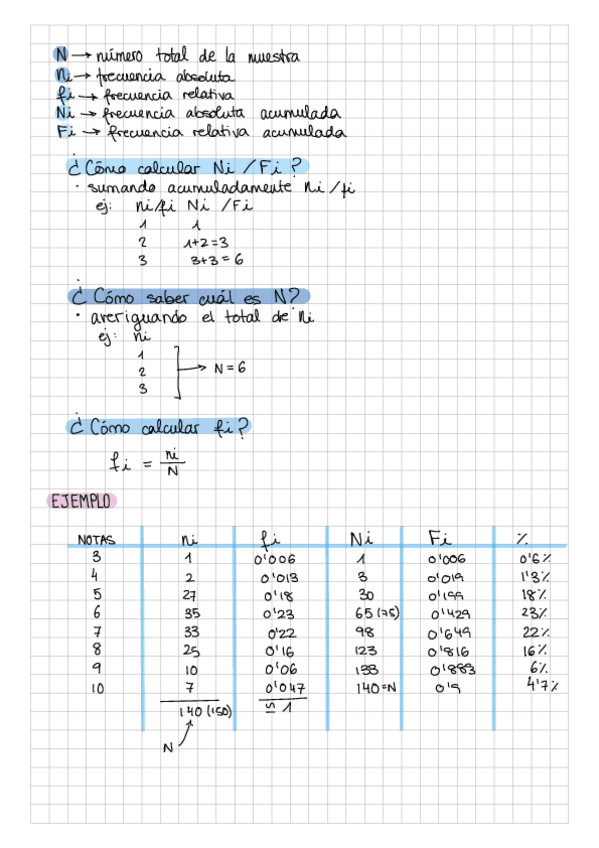 N → número total de la muestra
ni → frecuencia absoluta
fi → frecuencia relativa
Ni → frecuencia absoluta acumulada
Fi → frecuencia relativa acumulada
¿Cómo calcular Ni / Fi?
· sumando acumuladamente ni/fi
ej: ni/fi Ni / Fi
1 1
2 1+2=3
3 3+3=6
¿Cómo saber cuál es N?
· averiguando el total de ni
ej: ni
1
2 → N=6
3
¿Cómo calcular fi?
fi = ni/N
EJEMPLO
NOTAS ni fi Ni Fi %
3 1 0'006 1 0'006 0'6%
4 2 0'013 3 0'019 1'3%
5 27 0'18 30 0'199 18%
6 35 0'23 65 (75) 0'429 23%
7 33 0'22 98 0'649 22%
8 25 0'16 123 0'816 16%
9 10 0'06 133 0'883 6%
10 7 0'047 140=N 0'9 4'7%
140 (150) ≃ 1
N